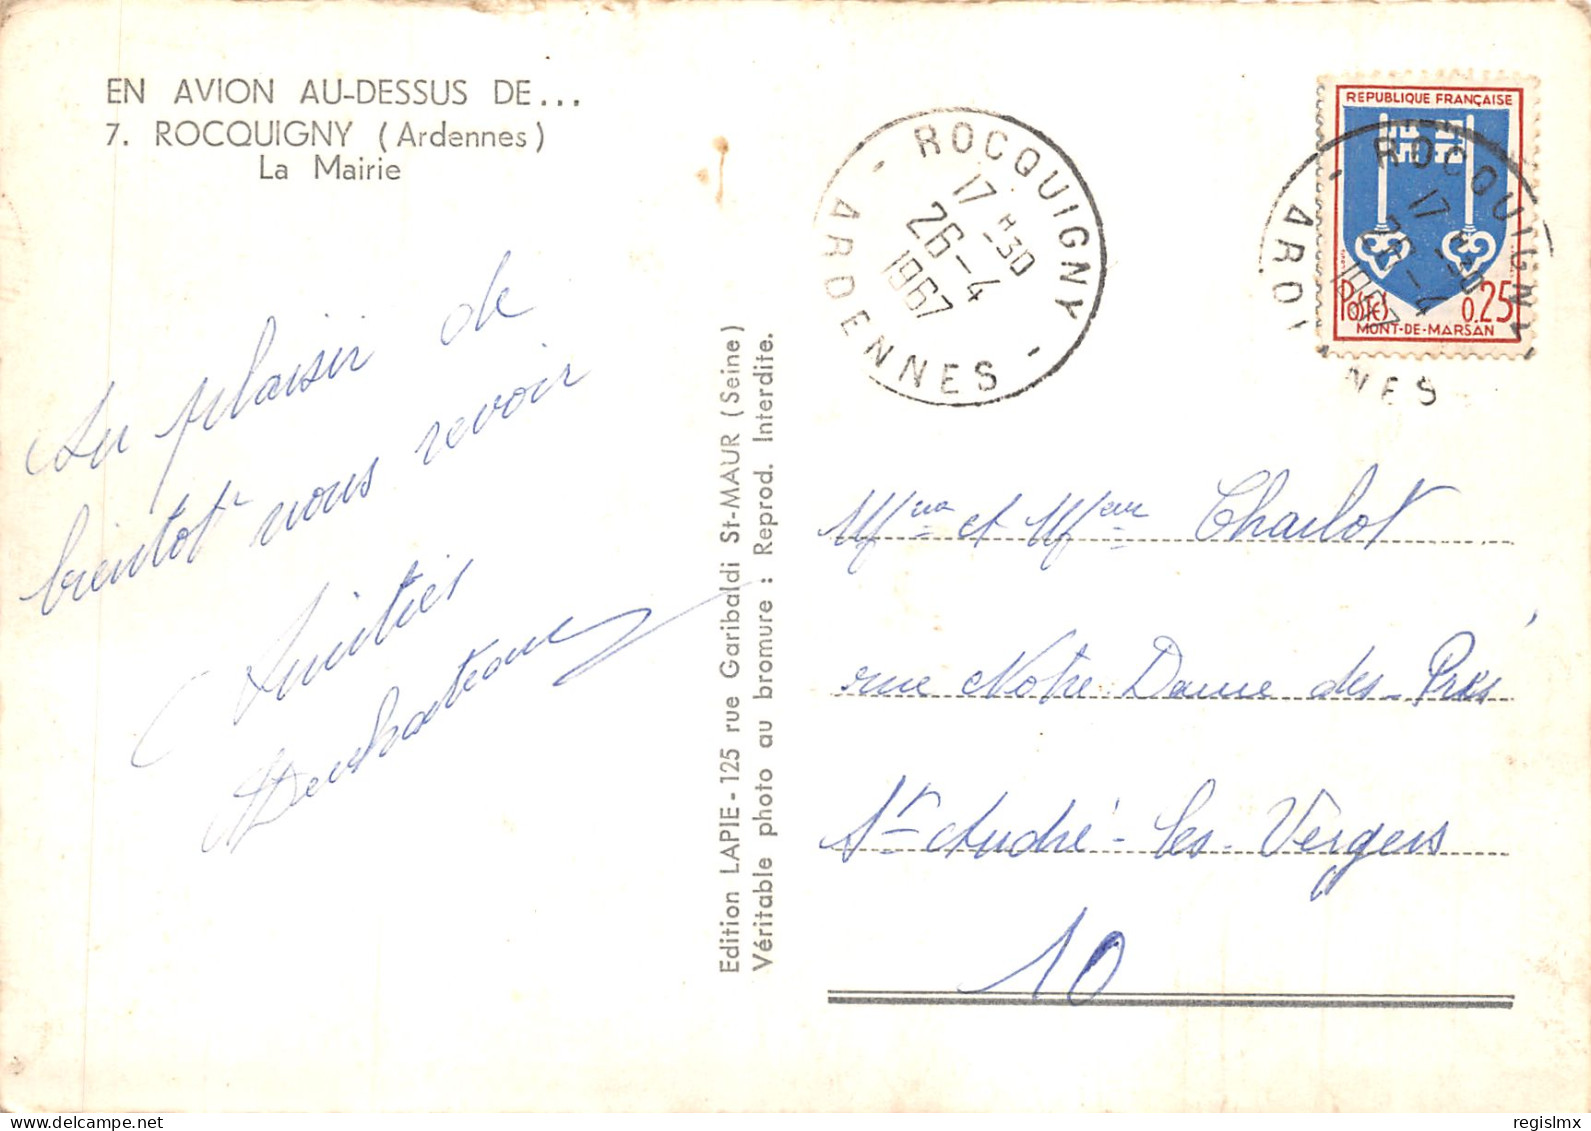 EN AVION AU-DESSUS DE...
7. ROCQUIGNY (Ardennes)
La Mairie
Au plaisir de
bientot vous revoir
Amitiés
Edition LAPIE - 125 rue Garibaldi St-MAUR (Seine)
Véritable photo au bromure : Reprod. Interdite.
ROCQUIGNY
17 H 30
26 - 4
1967
- ARDENNES -
REPUBLIQUE FRANÇAISE
Postes
0.25
MONT-DE-MARSAN
- ROCQUIGNY -
17 H 30
26 - 4
1967
et Charlot
rue Notre Dame des Prés
St André-les-Vergers
10
regislmx